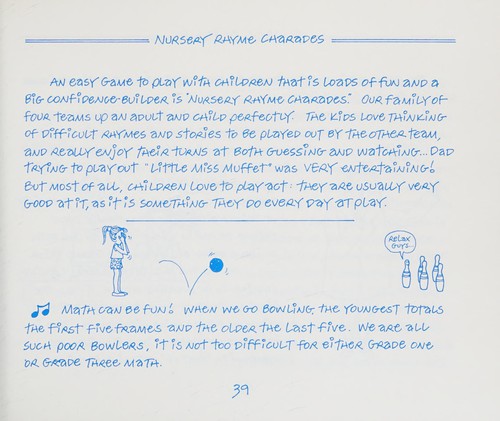 Nursery Rhyme Charades
An easy game to play with children that is loads of fun and a
big confidence-builder is "Nursery Rhyme Charades." Our family of
four teams up an adult and child perfectly. The kids love thinking
of difficult rhymes and stories to be played out by the other team,
and really enjoy their turns at both guessing and watching... Dad
trying to play out "Little Miss Muffet" was very entertaining!
But most of all, children love to play act: they are usually very
good at it, as it is something they do every day at play.
Relax
guys...
Math can be fun! When we go bowling, the youngest totals
the first five frames and the older the last five. We are all
such poor bowlers, it is not too difficult for either grade one
or grade three math.
39